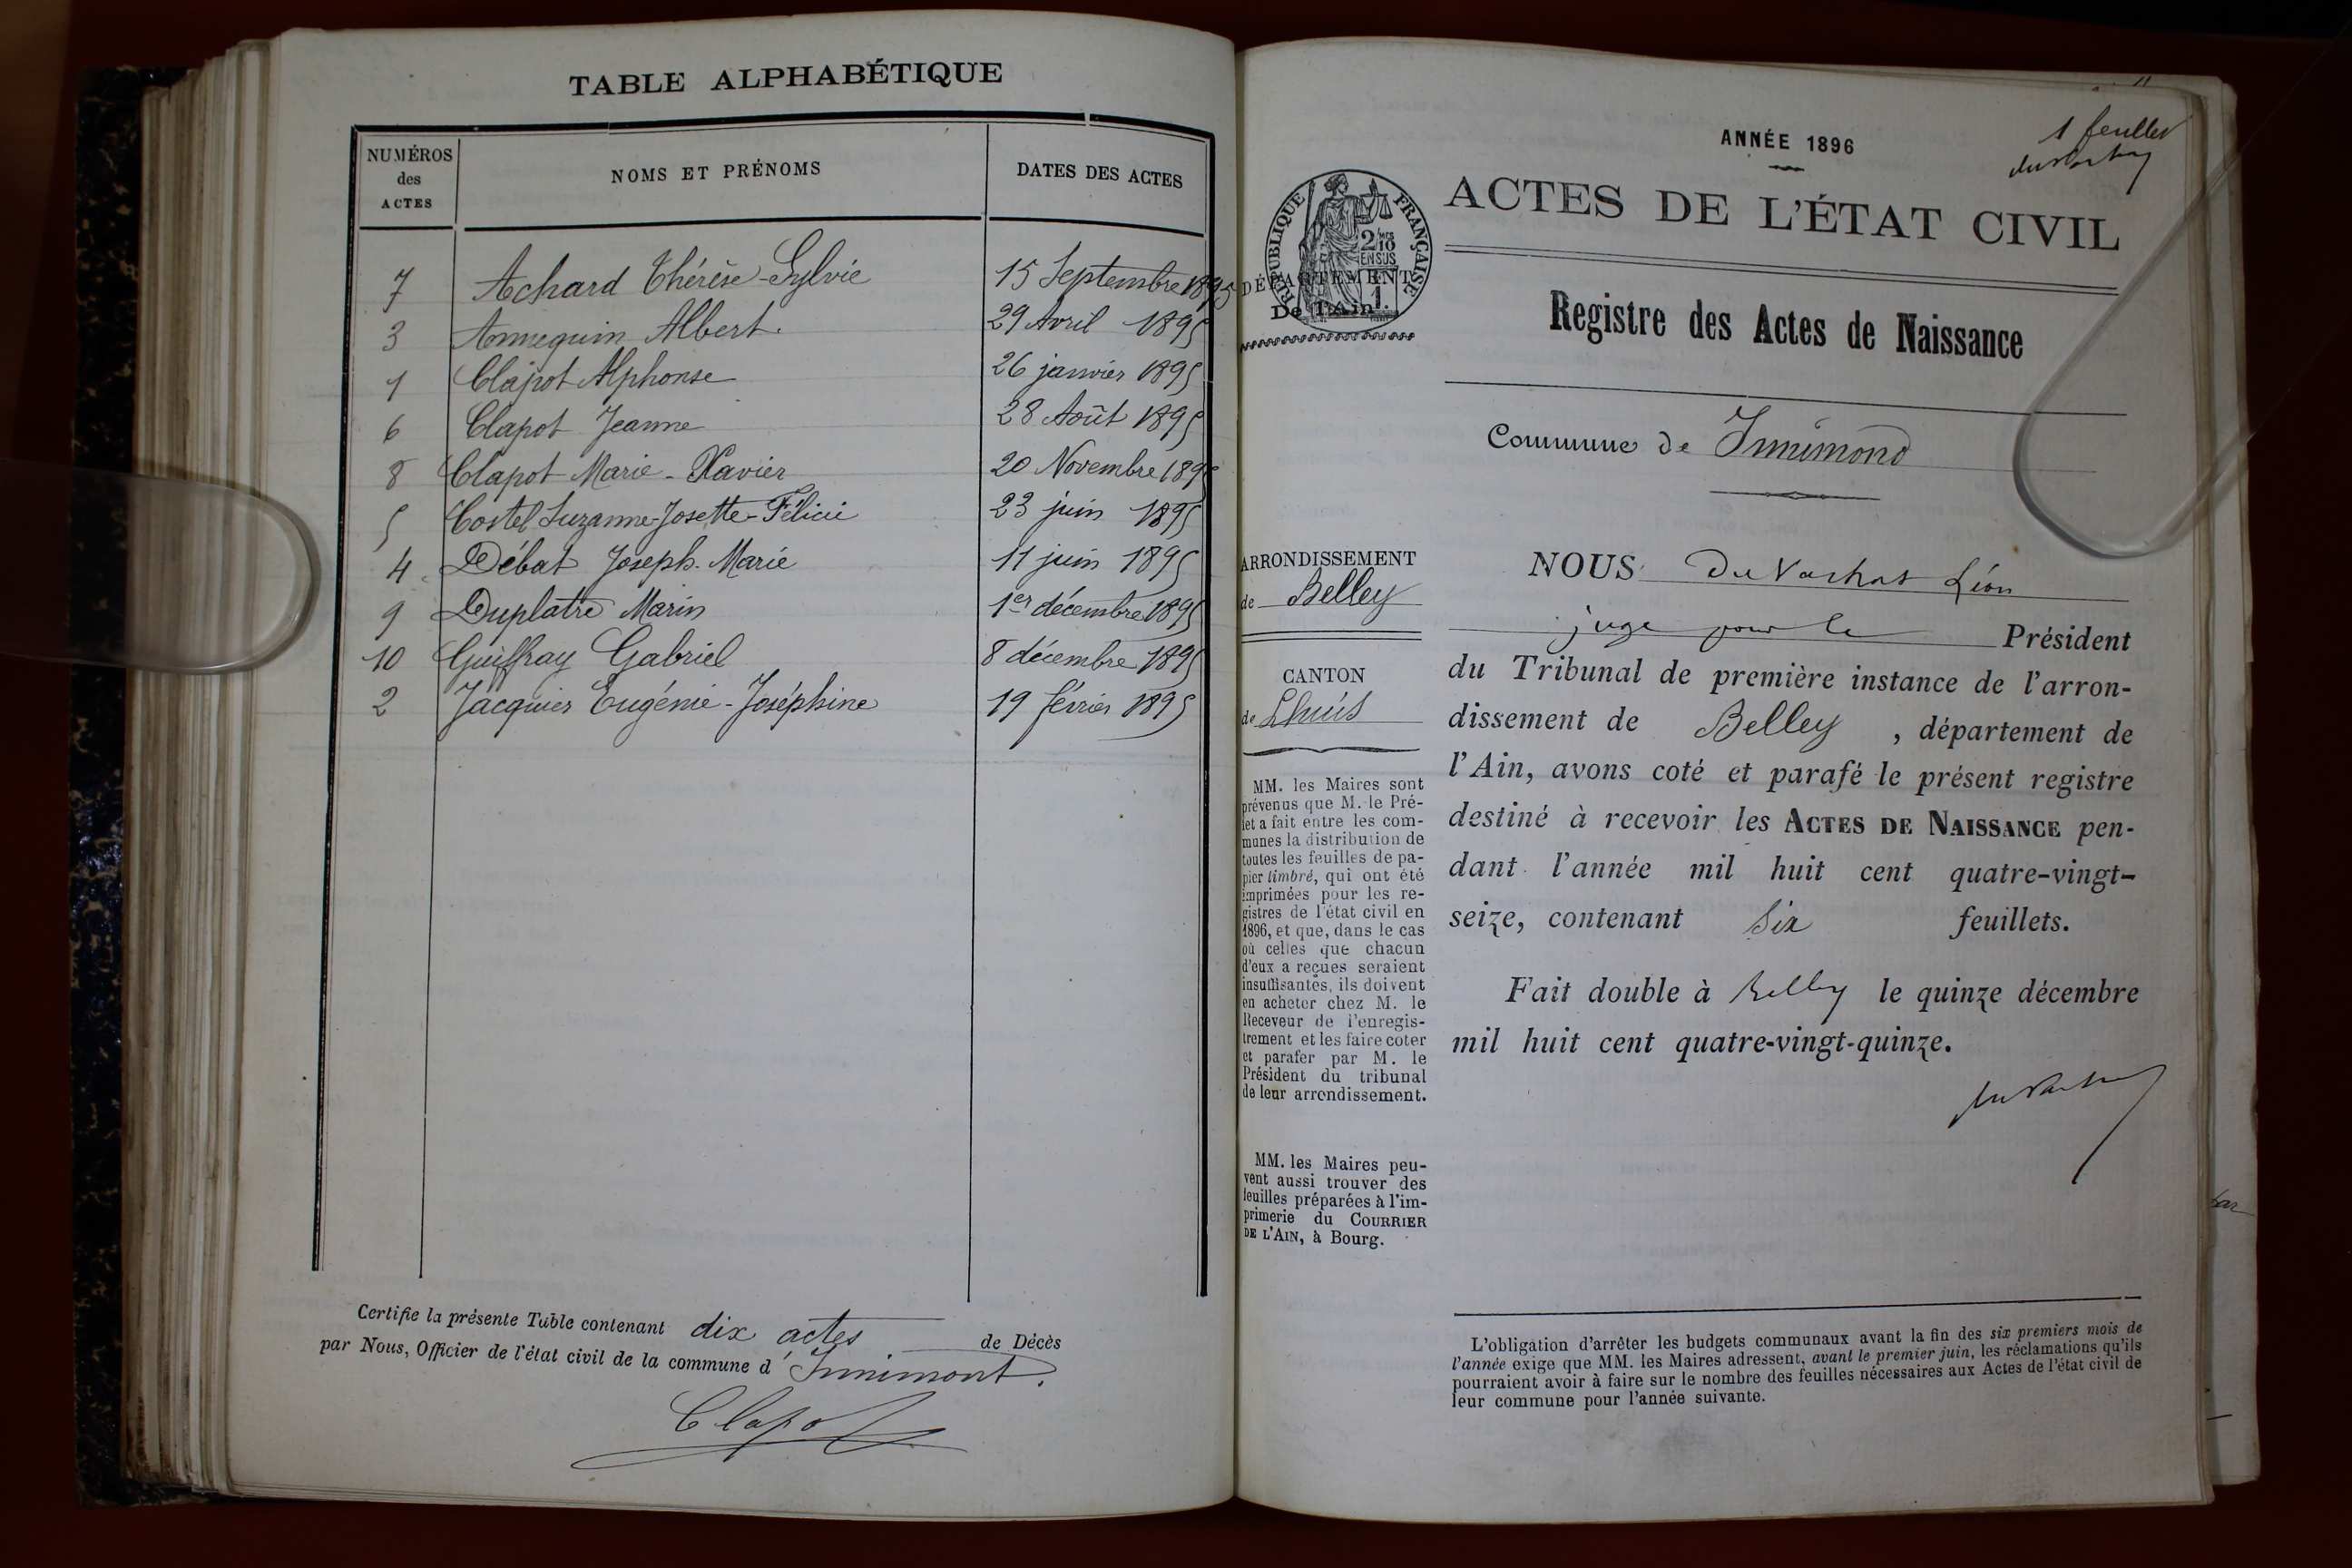 TABLE ALPHABÉTIQUE
NUMÉROS
des
ACTES
NOMS ET PRÉNOMS
DATES DES ACTES
7 Achard Thérèse-Sylvie 15 Septembre 1895
3 Annequin Albert. 29 Avril 1895
1 Clapot Alphonse 26 janvier 1895
6 Clapot Jeanne 28 Août 1895
8 Clapot Marie-Xavier 20 Novembre 1895
5 Costel Suzanne-Josette-Félicie 23 juin 1895
4 Débat Joseph-Marie 11 juin 1895
9 Duplatre Marin 1er décembre 1895
10 Guiffray Gabriel 8 décembre 1895
2 Jacquier Eugénie-Joséphine 19 février 1895
Certifie la présente Table contenant dix actes de Décès
par Nous, Officier de l'état civil de la commune d'Innimont.
Clapot
1 feuillet
ANNÉE 1896
ACTES DE L'ÉTAT CIVIL
RÉPUBLIQUE FRANÇAISE
2/10
EN SUS
1
DÉPARTEMENT
De l'Ain
Registre des Actes de Naissance
Commune de Innimond
ARRONDISSEMENT
de Belley
CANTON
de Lhuis
MM. les Maires sont
prévenus que M. le Pré-
fet a fait entre les com-
munes la distribution de
toutes les feuilles de pa-
pier timbré, qui ont été
imprimées pour les re-
gistres de l'état civil en
1896, et que, dans le cas
où celles que chacun
d'eux a reçues seraient
insuffisantes, ils doivent
en acheter chez M. le
Receveur de l'enregis-
trement et les faire coter
et parafer par M. le
Président du tribunal
de leur arrondissement.
MM. les Maires peu-
vent aussi trouver des
feuilles préparées à l'im-
primerie du COURRIER
DE L'AIN, à Bourg.
NOUS Du Vachat Léon
juge pour le Président
du Tribunal de première instance de l'arron-
dissement de Belley, département de
l'Ain, avons coté et parafé le présent registre
destiné à recevoir les ACTES DE NAISSANCE pen-
dant l'année mil huit cent quatre-vingt-
seize, contenant Six feuillets.
Fait double à Belley le quinze décembre
mil huit cent quatre-vingt-quinze.
L'obligation d'arrêter les budgets communaux avant la fin des six premiers mois de
l'année exige que MM. les Maires adressent, avant le premier juin, les réclamations qu'ils
pourraient avoir à faire sur le nombre des feuilles nécessaires aux Actes de l'état civil de
leur commune pour l'année suivante.